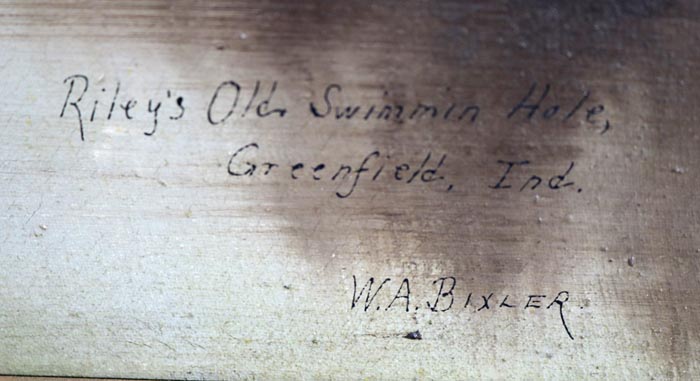 Riley's Old Swimmin Hole,
Greenfield, Ind.
W.A. Bixler